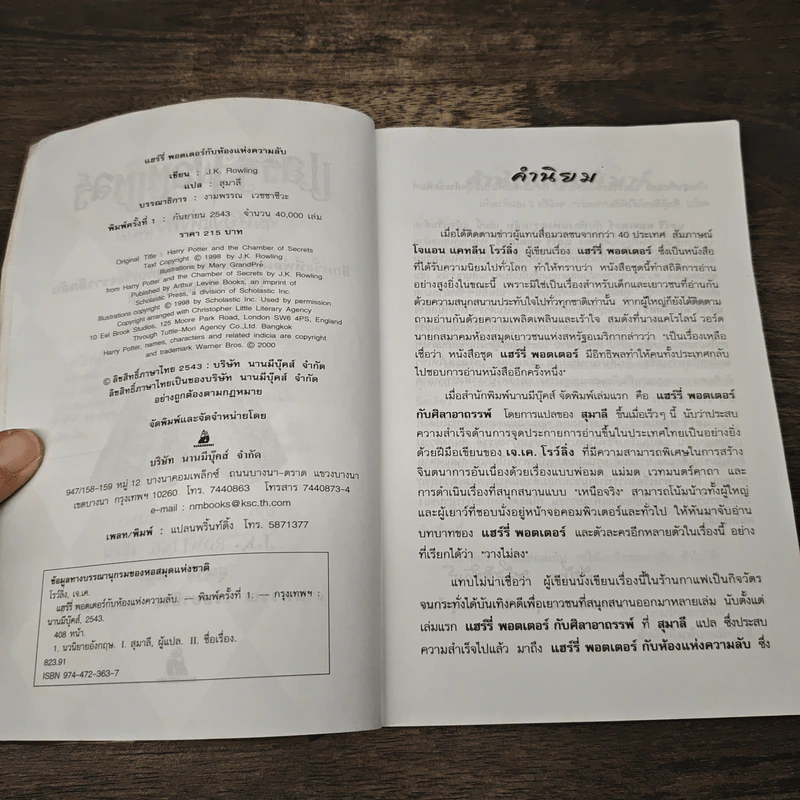 แฮร์รี่ พอตเตอร์กับห้องแห่งความลับ
เขียน : J.K. Rowling
แปล : สุมาลี
บรรณาธิการ : งามพรรณ เวชชาชีวะ
พิมพ์ครั้งที่ 1 : กันยายน 2543 จำนวน 40,000 เล่ม
ราคา 215 บาท
Original Title : Harry Potter and the Chamber of Secrets
Text Copyright © 1998 by J.K. Rowling
Illustrations by Mary GrandPré
from Harry Potter and the Chamber of Secrets by J.K. Rowling
Published by Arthur Levine Books, an imprint of
Scholastic Press, a division of Scholastic Inc.
Illustrations copyright © 1998 by Scholastic Inc. Used by permission.
Copyright arranged with Christopher Little Literary Agency
10 Eel Brook Studios, 125 Moore Park Road, London SW6 4PS, England
Through Tuttle-Mori Agency Co.,Ltd. Bangkok
Harry Potter, names, characters and related indicia are copyright
and trademark Warner Bros. © 2000
© ลิขสิทธิ์ภาษาไทย 2543 : บริษัท นานมีบุ๊คส์ จำกัด
ลิขสิทธิ์ภาษาไทยเป็นของบริษัท นานมีบุ๊คส์ จำกัด
อย่างถูกต้องตามกฎหมาย
จัดพิมพ์และจัดจำหน่ายโดย
บริษัท นานมีบุ๊คส์ จำกัด
947/158-159 หมู่ 12 บางนาคอมเพล็กซ์ ถนนบางนา-ตราด แขวงบางนา
เขตบางนา กรุงเทพฯ 10260 โทร. 7440863 โทรสาร 7440873-4
e-mail : nmbooks@ksc.th.com
เพลท/พิมพ์ : แปลนพริ้นท์ติ้ง โทร. 5871377
ข้อมูลทางบรรณานุกรมของหอสมุดแห่งชาติ
โรว์ลิ่ง, เจ.เค.
แฮร์รี่ พอตเตอร์กับห้องแห่งความลับ. — พิมพ์ครั้งที่ 1. — กรุงเทพฯ :
นานมีบุ๊คส์, 2543.
408 หน้า.
1. นวนิยายอังกฤษ. I. สุมาลี, ผู้แปล. II. ชื่อเรื่อง.
823.91
ISBN 974-472-363-7
คำนิยม
เมื่อได้ติดตามข่าวผู้แทนสื่อมวลชนจากกว่า 40 ประเทศ สัมภาษณ์
โจแอน แคทลีน โรว์ลิ่ง ผู้เขียนเรื่อง แฮร์รี่ พอตเตอร์ ซึ่งเป็นหนังสือ
ที่ได้รับความนิยมไปทั่วโลก ทำให้ทราบว่า หนังสือชุดนี้ทำสถิติการอ่าน
อย่างสูงยิ่งในขณะนี้ เพราะมิใช่เป็นเรื่องสำหรับเด็กและเยาวชนที่อ่านกัน
ด้วยความสนุกสนานประทับใจไปทั่วทุกชาติเท่านั้น หากผู้ใหญ่ก็ยังได้ติดตาม
ถามอ่านกันด้วยความเพลิดเพลินและเร้าใจ สมดังที่นางแคโรไลน์ วอร์ด
นายกสมาคมห้องสมุดเยาวชนแห่งสหรัฐอเมริกากล่าวว่า "เป็นเรื่องเหลือ
เชื่อว่า หนังสือชุด แฮร์รี่ พอตเตอร์ มีอิทธิพลทำให้คนทั้งประเทศกลับ
ไปชอบการอ่านหนังสืออีกครั้งหนึ่ง"
เมื่อสำนักพิมพ์นานมีบุ๊คส์ จัดพิมพ์เล่มแรก คือ แฮร์รี่ พอตเตอร์
กับศิลาอาถรรพ์ โดยการแปลของ สุมาลี ขึ้นเมื่อเร็วๆ นี้ นับว่าประสบ
ความสำเร็จด้านการจุดประกายการอ่านขึ้นในประเทศไทยเป็นอย่างยิ่ง
ด้วยฝีมือเขียนของ เจ.เค. โรว์ลิ่ง ที่มีความสามารถพิเศษในการสร้าง
จินตนาการอันเนื่องด้วยเรื่องแบบพ่อมด แม่มด เวทมนตร์คาถา และ
การดำเนินเรื่องที่สนุกสนานแบบ "เหนือจริง" สามารถโน้มน้าวทั้งผู้ใหญ่
และผู้เยาว์ที่ชอบนั่งอยู่หน้าจอคอมพิวเตอร์และทั่วไป ให้หันมาจับอ่าน
บทบาทของ แฮร์รี่ พอตเตอร์ และตัวละครอีกหลายตัวในเรื่องนี้ อย่าง
ที่เรียกได้ว่า "วางไม่ลง"
แทบไม่น่าเชื่อว่า ผู้เขียนนั่งเขียนเรื่องนี้ในร้านกาแฟเป็นกิจวัตร
จนกระทั่งได้บันเทิงคดีเพื่อเยาวชนที่สนุกสนานออกมาหลายเล่ม นับตั้งแต่
เล่มแรก แฮร์รี่ พอตเตอร์ กับศิลาอาถรรพ์ ที่ สุมาลี แปล ซึ่งประสบ
ความสำเร็จไปแล้ว มาถึง แฮร์รี่ พอตเตอร์ กับห้องแห่งความลับ ซึ่ง